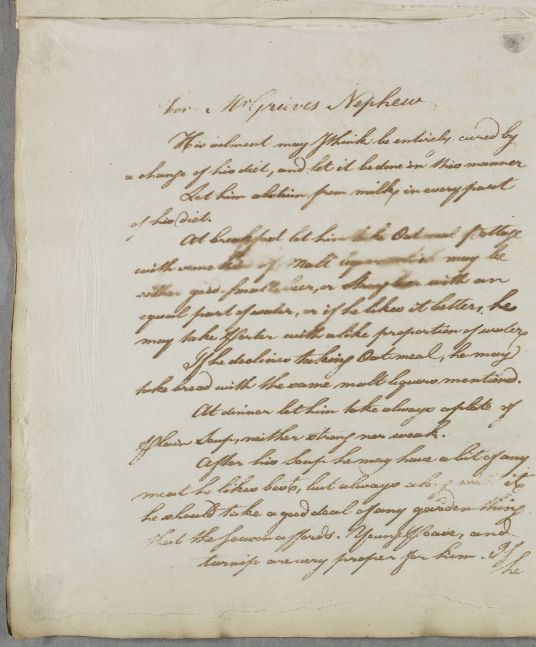 For Mr Grieves Nephew
His ailment may I think be entirely cured by
a change of his diet, and let it be done in this manner
Let him abstain from milk, in every part
of his diet.
At breakfast let him take Oat meal pottage
with some kind of Malt liquor may be
either good small beer, or Strong beer with an
equal part of water, or if he likes it better, he
may take Porter with a like proportion of water,
If he declines taking Oat meal, he may
take bread with the same malt liquors mentiond.
At dinner let him take always a plate of
plain Soup, neither strong nor weak.
After his Soup he may have a bit of any
meat he likes best, but always along with it
he should take a good deal of any garden thing
that the season affords. Young Pease, and
turnip are very proper for him. If
he